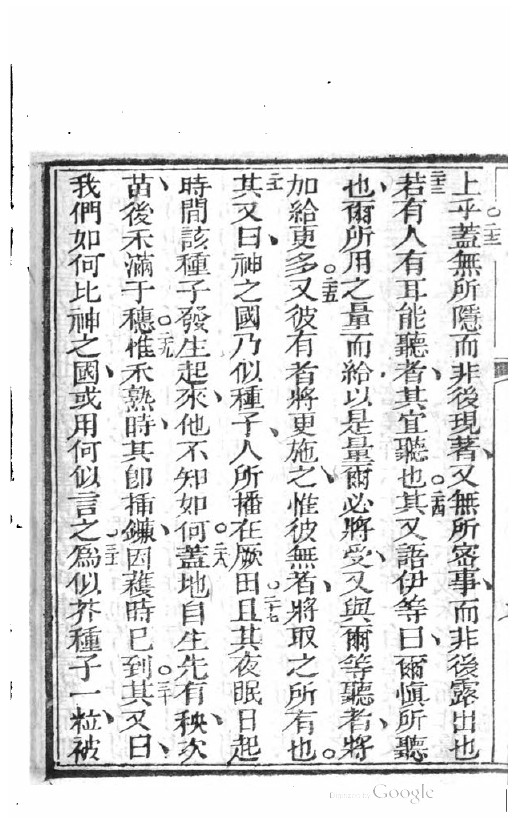 上乎蓋無所隱而非後現著又無所密事而非後露出也
若有人有耳能聽者其宜聽也其又語伊等曰爾慎所聽
也爾所用之量而給以是量爾必將受又與爾等聽者將
加給更多又彼有者將更施之惟彼無者將取之所有也
其又曰神之國乃似種子人所播在厥田且其夜眠日起
時間該種子發生起來他不知如何蓋地自生先有秧次
苗後禾滿于穗惟禾熟時其卽插鐮因穫時已到其又曰
我們如何比神之國或用何似言之爲似芥種子一粒被
Digitized by Google